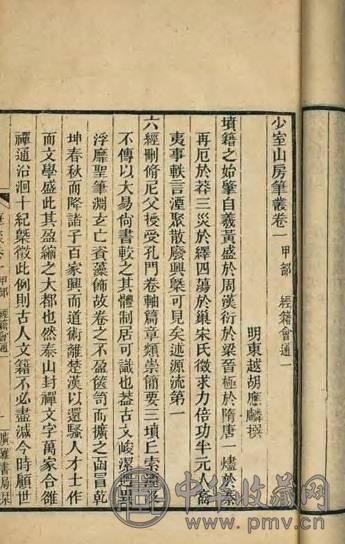 少室山房筆叢卷一 甲部 經籍會通一
明東越胡應麟撰
墳籍之始肇自羲黃盛於周漢衍於梁晉極於隋唐一燼於秦
再厄於莽三災於繹四蕩於巢宋氏徵求力倍功半元人裔
夷事軼言湮聚散廢興槩可見矣述源流第一
六經刪脩尼父授受孔門卷軸篇章類崇簡要三墳丘索
不傳以大易尚書較之其體制居可識也益古文峻潔
浮靡聖筆淵玄亡資藻飾故卷之不盈篋笥而擴之函冒乾
坤春秋而降諸子百家興而道術離楚漢以還騷人才士作
而文學盛此其盈縮之大都也然泰山封禪文字萬家合雒
禪通沿洄十紀槩徵此例則古人文籍不必盡減今時顧世
甲部 經籍會通一
廣雅書局栞
中华收藏网
www.pmv.cn